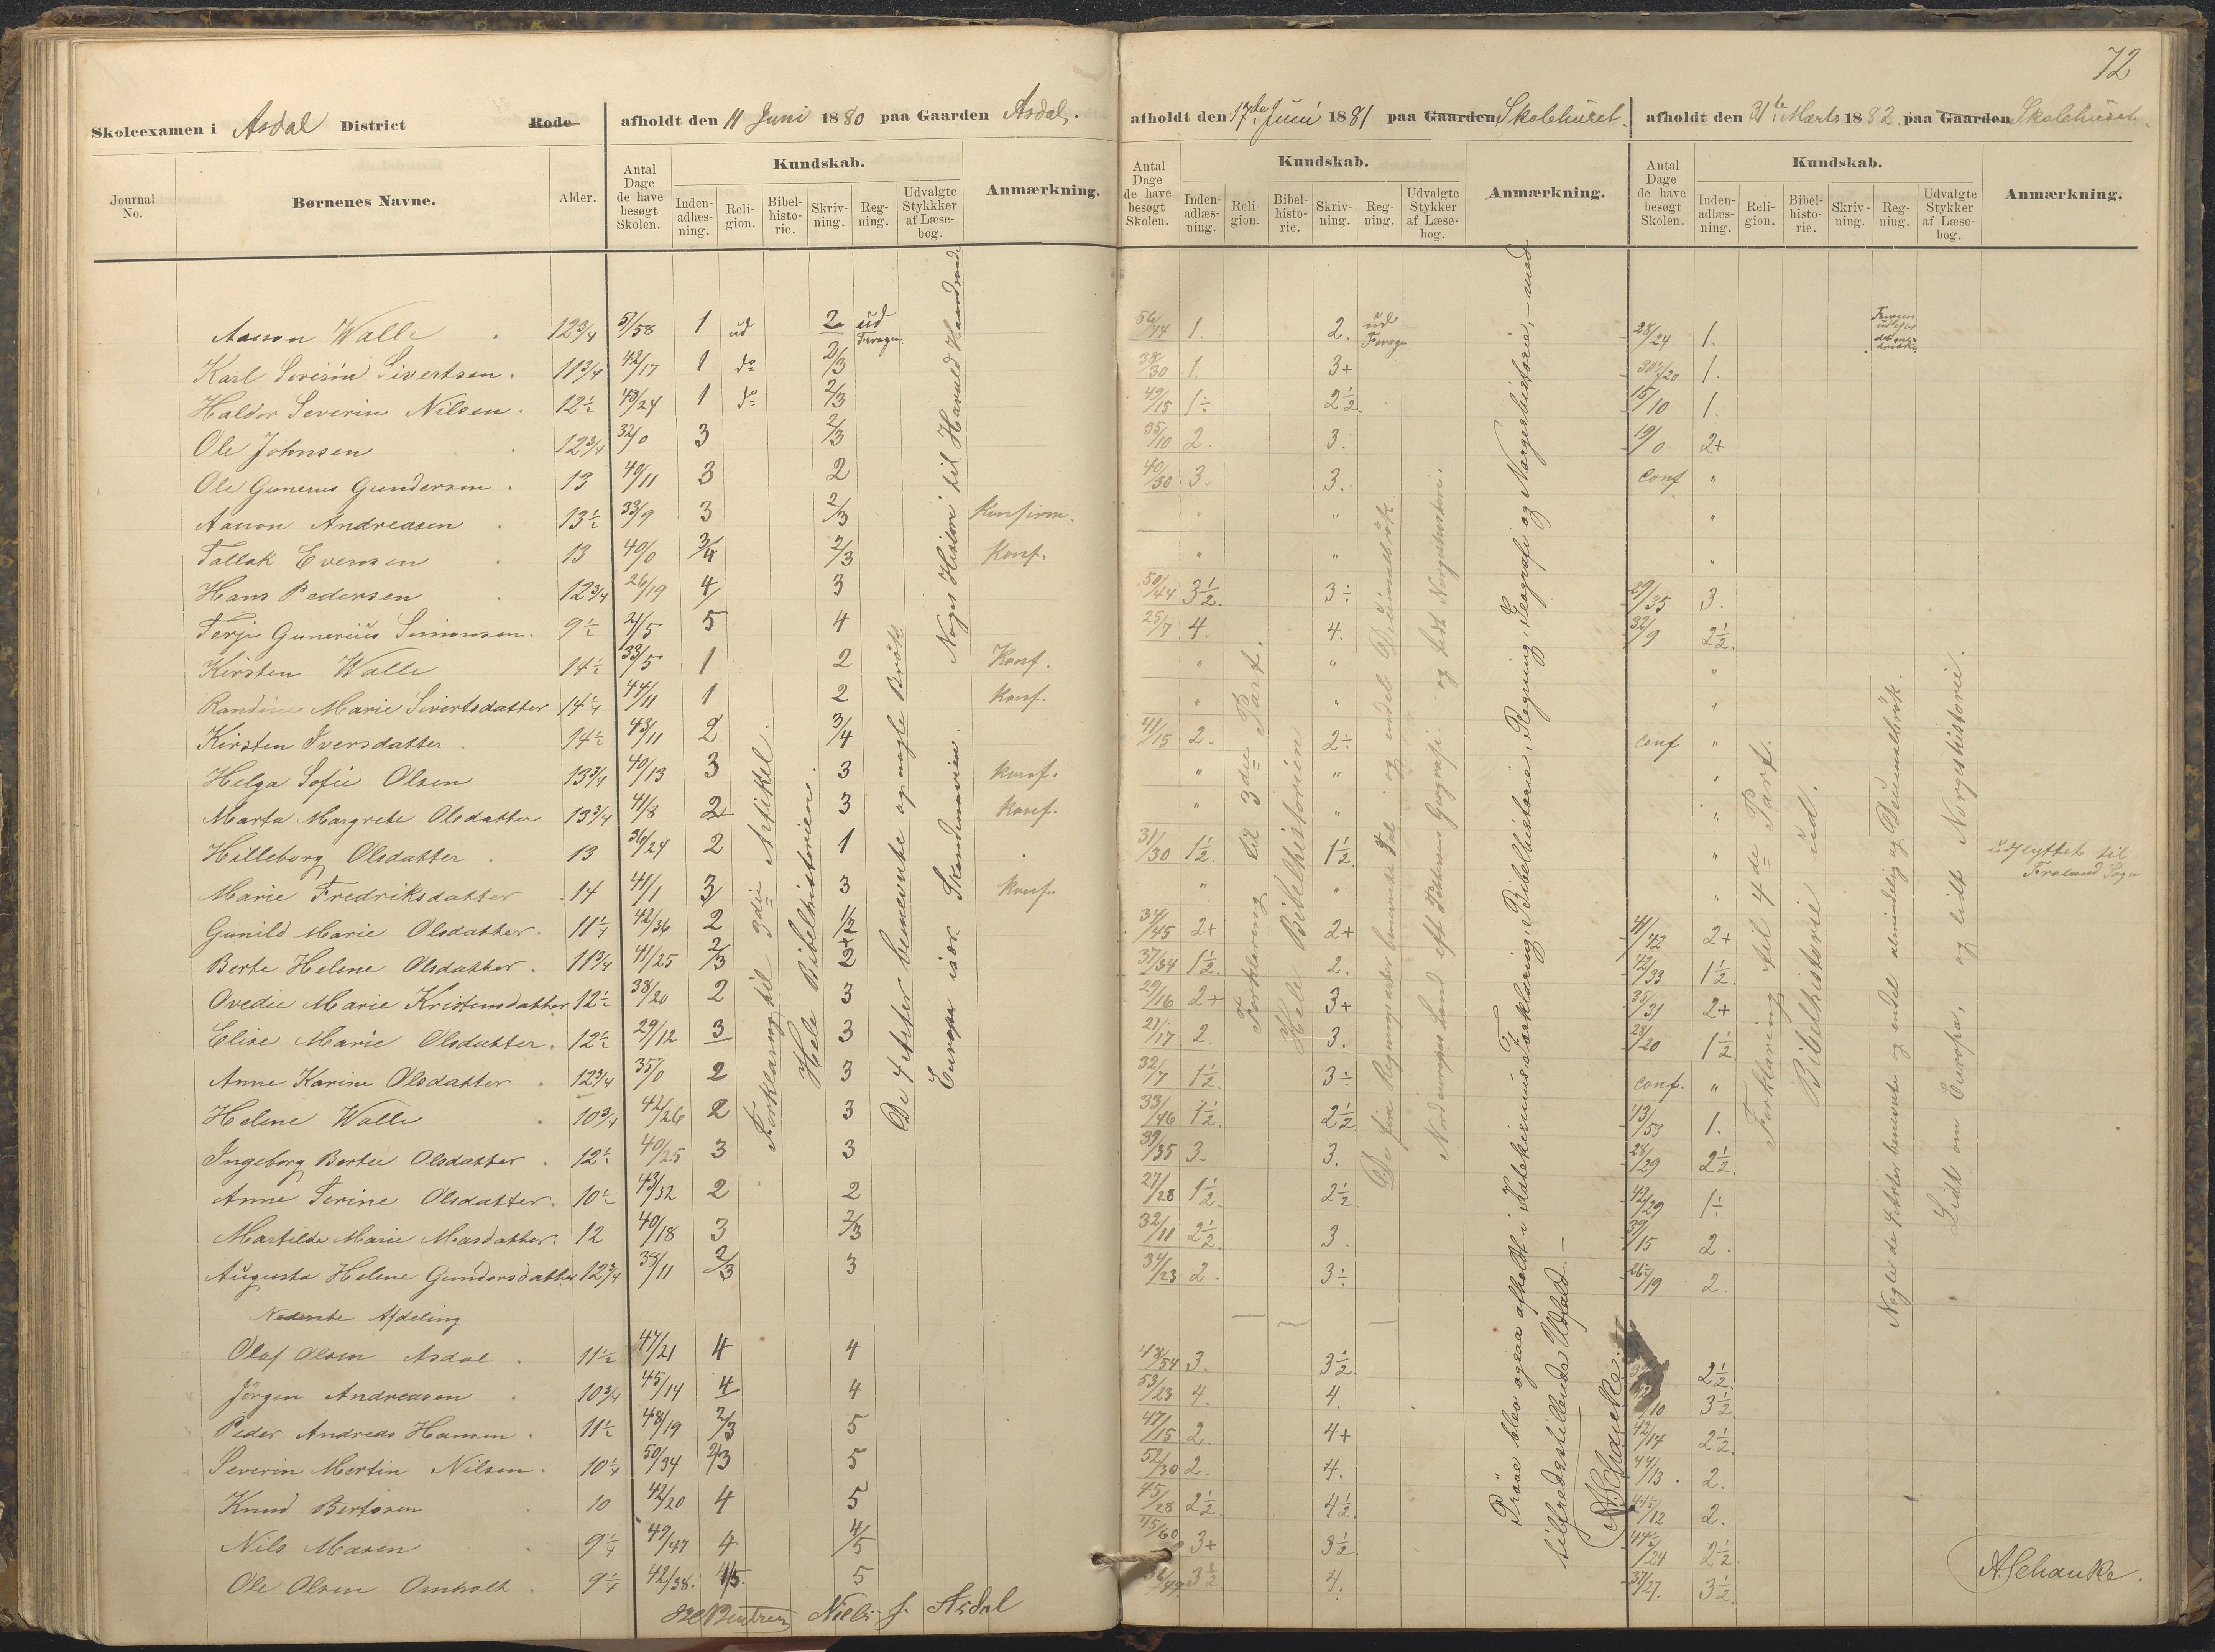 72
Skoleexamen i Asdal District Rode afholdt den 11 Juni 1880 paa Gaarden Asdal.
Journal No. Børnenes Navne. Alder. Antal Dage de have besøgt Skolen. Kundskab. Anmærkning.
Inden- adlæs- ning. Reli- gion. Bibel- histo- rie. Skriv- ning. Reg- ning. Udvalgte Stykkker af Læse- bog.
Aanon Walle 12 3/4 57/58 1 ud 2 ud
Karl Severin Sivertsen. 11 3/4 42/17 1 do 2/3
Haldor Severin Nilsen. 12 1/2 40/24 1 do 2/3
Ole Johnsen 12 3/4 32/0 3 2/3
Ole Gunerius Gundersen. 13 40/11 3 2
Aanon Andreasen 13 1/2 33/9 3 2/3 Konfirm.
Tallak Evensen 13 40/0 3/4 2/3 Konf.
Hans Pedersen 12 3/4 26/19 4 3
Terje Gunerius Simonsen. 9 1/2 21/5 5 4
Kirsten Walle 14 1/2 33/5 1 2 Konf.
Randine Marie Sivertsdatter 14 1/4 44/11 1 2 Konf.
Kirsten Iversdatter 14 1/2 43/11 2 3/4
Helga Sofie Olsen 13 3/4 40/13 3 3 konf.
Marta Margrete Olsdatter 13 3/4 41/8 2 3 konf.
Hilleborg Olsdatter 13 36/24 2 1
Marie Fredriksdatter 14 41/1 3 3 konf.
Gunild Marie Olsdatter. 11 1/4 42/36 2 1/2
Berte Helene Olsdatter. 11 3/4 41/25 2/3 2+
Ovedie Marie Kristensdatter 12 1/2 38/20 2 3
Elise Marie Olsdatter. 12 1/2 29/12 3 3
Anne Karine Olsdatter 12 3/4 35/0 2 3
Helene Walle 10 3/4 42/26 2 3
Ingeborg Bertee Olsdatter 12 1/2 40/25 3 3
Anne Serine Olsdatter. 10 1/2 43/32 2 2
Martilde Marie Masdatter. 12 40/18 3 2/3
Augusta Helene Gundersdatter 12 3/4 38/11 2/3 3
Nederste Afdeling
Olaf Olsen Asdal 11 1/2 47/21 4 4
Jörgen Andreasen 10 3/4 45/14 4 4
Peder Andreas Hansen 11 1/2 48/19 2/3 5
Severin Martin Nilsen. 10 1/4 50/34 2/3 5
Knud Bertosen 10 42/20 4 5
Nils Masen 9 1/4 49/47 4 4/5
Ole Olsen Omholt 9 1/4 42/38. 4/5. 5
Forklaring til 3die Artikel.
Hele Bibelhistorien.
De 4 Arter benevnte og nogle Brök
Europa især Skandinavien.
Norges Historie til Harald Haardraade
Niels J. Asdal
afholdt den 17de Juni 1881 paa Gaarden Skolehuset.
Antal Dage de have besøgt Skolen. Kundskab. Anmærkning.
Inden- adlæs- ning. Reli- gion. Bibel- histo- rie. Skriv- ning. Reg- ning. Udvalgte Stykker af Læse- bog.
56/74 1. 2. ud
38/30 1 3+
49/15 1÷ 2 1/2.
35/10 2. 3.
40/30 3. 3.
" "
" "
50/44 3 1/2. 3÷
25/7 4. 4.
" "
" "
41/15 2. 2÷
" "
" "
31/30 1 1/2. 1 1/2.
" "
34/45 2+ 2+
37/34 1 1/2. 2.
29/16 2+ 3+
21/17 2. 3.
32/7 1 1/2. 3÷
33/46 1 1/2. 2 1/2
39/35 3. 3.
27/28 1 1/2. 2 1/2
32/11 2 1/2. 3.
34/23 2. 3÷
48/54 3. 3 1/2
53/23 4. 4.
47/15 2. 4+
52/30 2. 4.
45/28 2 1/2. 4 1/2.
45/60 3+ 3 1/2
36/49 3 1/2 4.
Forklaring til 3die Part.
Hele Bibelhistorien
De fire Regningsarter benævnte Tal og endel Decimalbrök
Nordeuropas Land eft Geografi og lidt Norgeshistorie.
Pröve blev ogsaa afholdt i Katekismus, Forklaring, Bibelhistorie, Regning, Geografi og Norgeshistorie, – med
tilfredsstillende Udfald. –
A. Schancke.
afholdt den 31te Marts 1882. paa Gaarden Skolehuset.
Antal Dage de have besøgt Skolen. Kundskab. Anmærkning.
Inden- adlæs- ning. Reli- gion. Bibel- histo- rie. Skriv- ning. Reg- ning. Udvalgte Stykker af Læse- bog.
28/24 1.
30 1/2/20 1.
15/10 1.
19/0 2+
conf "
"
"
29/35 3.
32/9 2 1/2.
"
"
conf "
"
"
" udflyttet til Froland Sogn
"
41/42 2+
42/33 1 1/2.
35/31 2+
28/20 1 1/2.
conf. "
43/53 1.
28/29 2 1/2.
42/29 1÷
39/15 2.
26 1/2/19 2.
2 1/2.
/10 3 1/2.
42/14 2 1/2.
44/13. 2.
/12 2.
44 1/2/24 2 1/2.
37/27. 3 1/2.
Forklaring til 4de Part.
Bibelhistorie ud.
Nogle de 4 Arter benevnte og endel almindelig og Decimalbrök.
Lidt om Europa, og lidt Norgeshistorie.
A. Schancke.